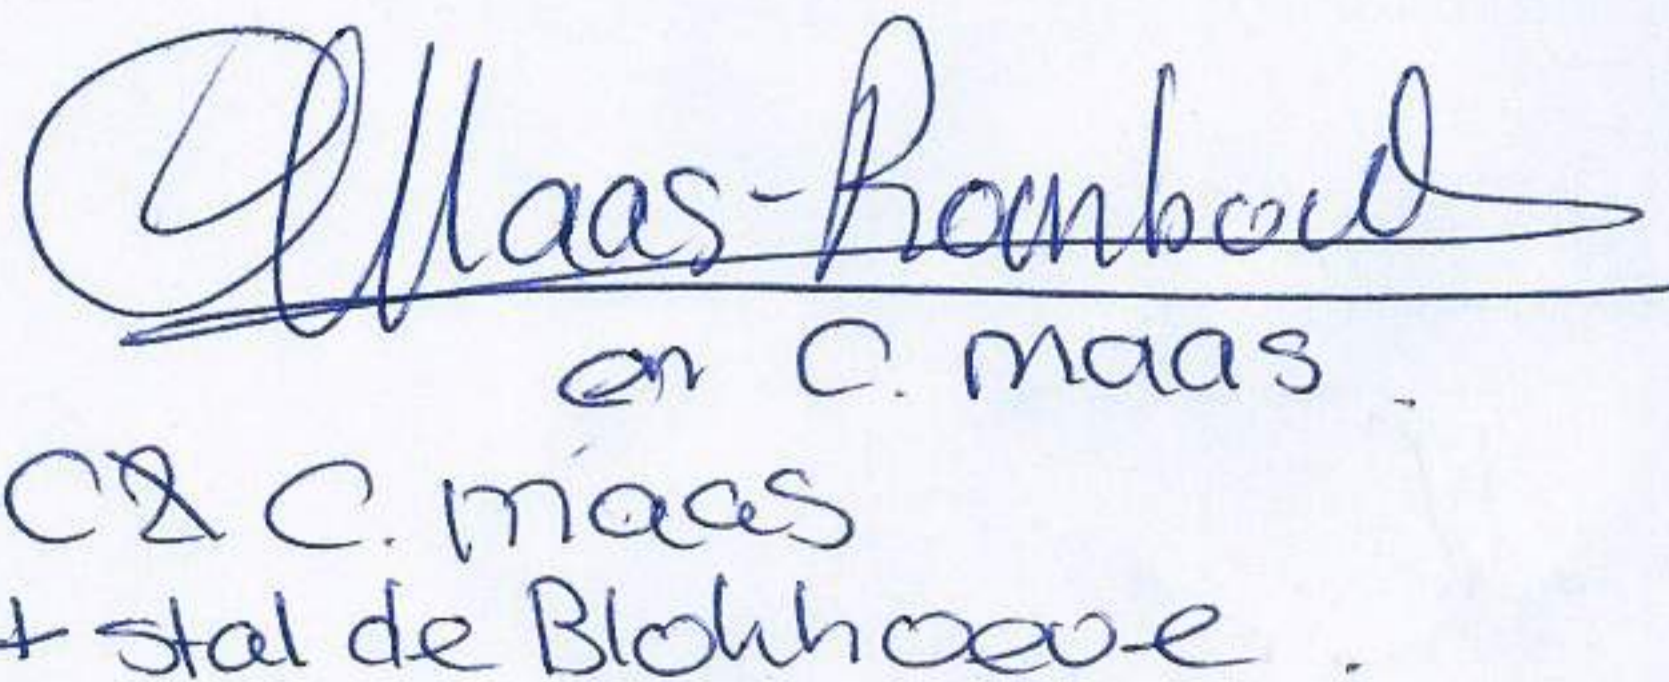 CMaas-Rombouts
en C. Maas.
C & C. Maas
+ stal de Blokhoeve.